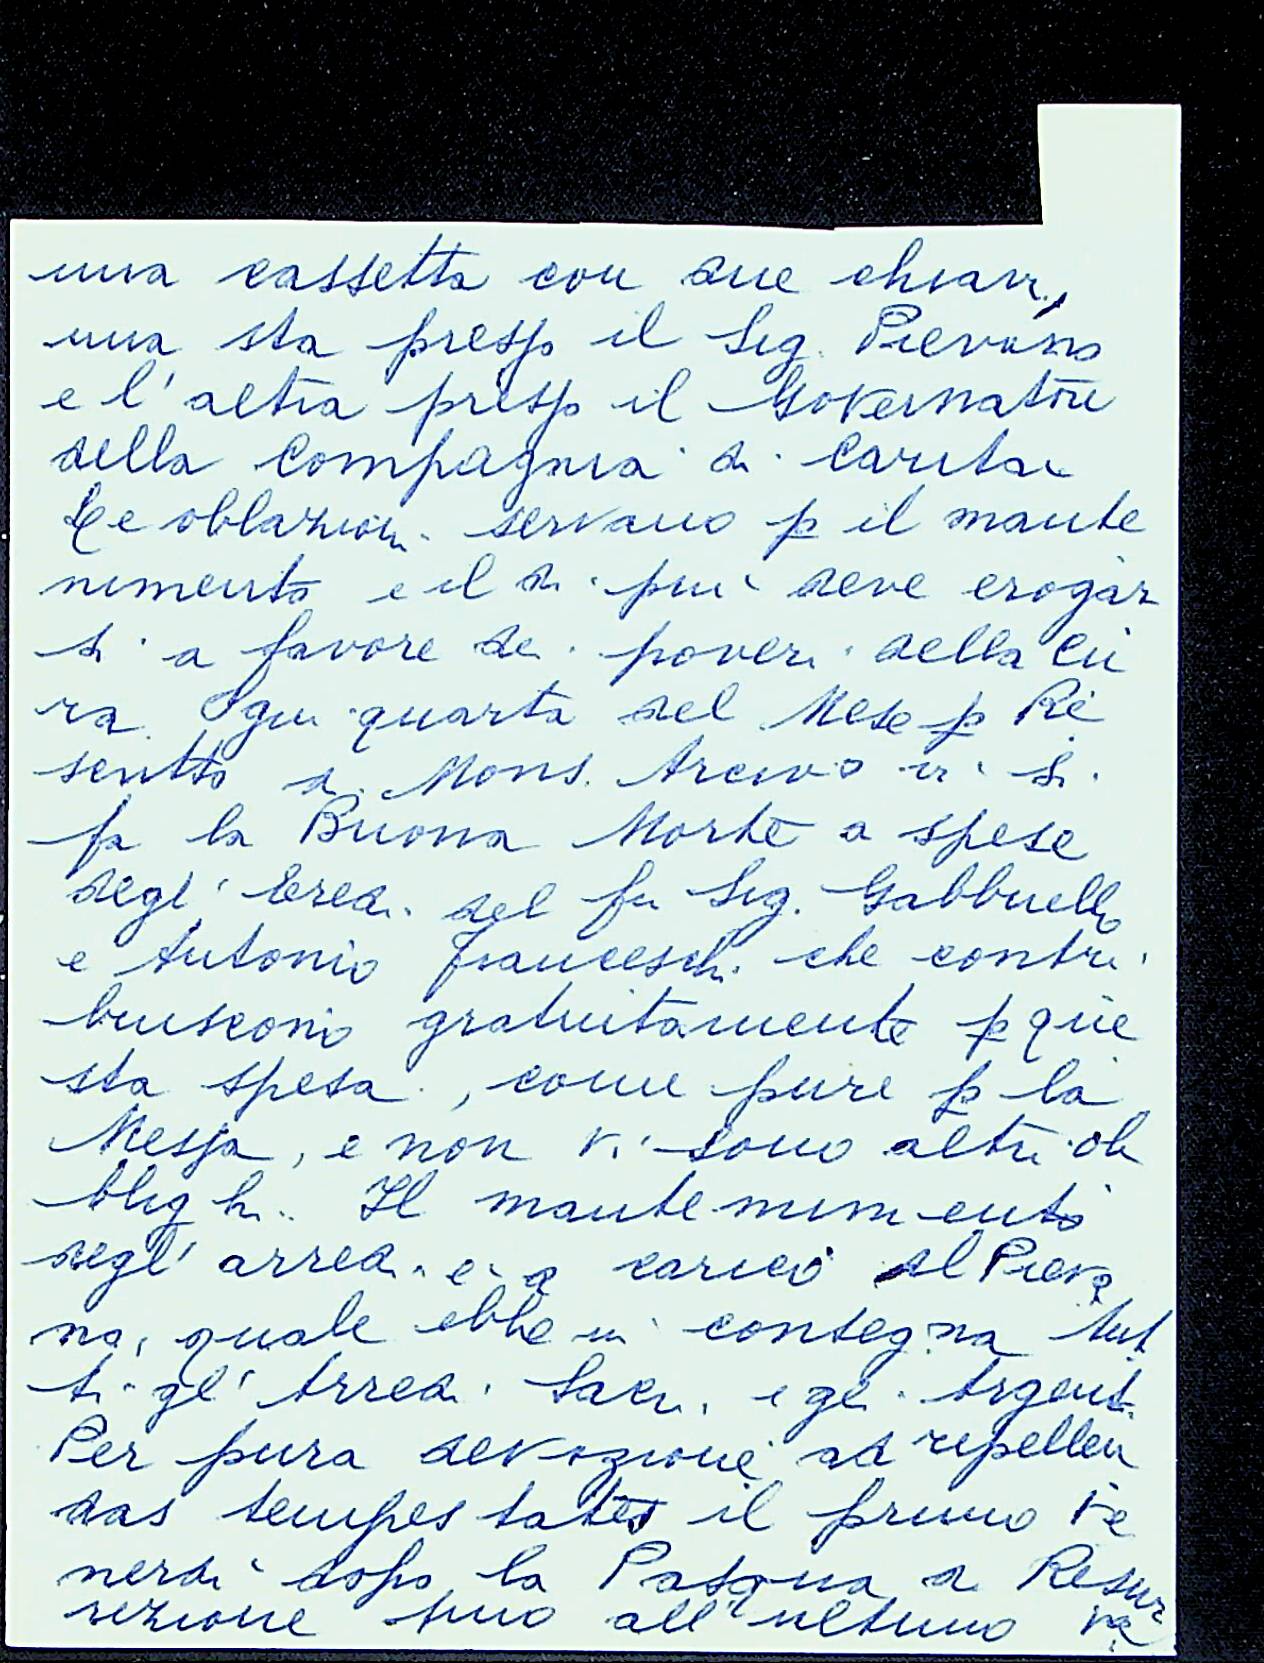 una cassetta con due chiavi,
una sta presso il Sig. Pievano
e l'altra presso il Governatore
della Compagnia di Carita
Le oblazioni servano p il mante
nimento e il di più deve erogar
si a favore dei poveri della Cu
ra. Ogni quarta del Mese p Re
scritto di Mons. Arcivo vi si
fa la Buona Morte a spese
degl' Eredi del fu Sig. Gabbriello
e Antonio Franceschi che contri
buiscono gratuitamente p que
sta spesa, come pure p la
Messa, e non vi sono altri ob
blighi. Il mantenimento
degl' arredi è a carico del Pieva
no, quale ebbe in consegna tut
ti gl' Arredi Sacri, e gli Argenti.
Per pura devozione ad repellen
das tempestates il primo Ve
nerdì dopo la Pasqua di Resur
rezione fino all'ultimo